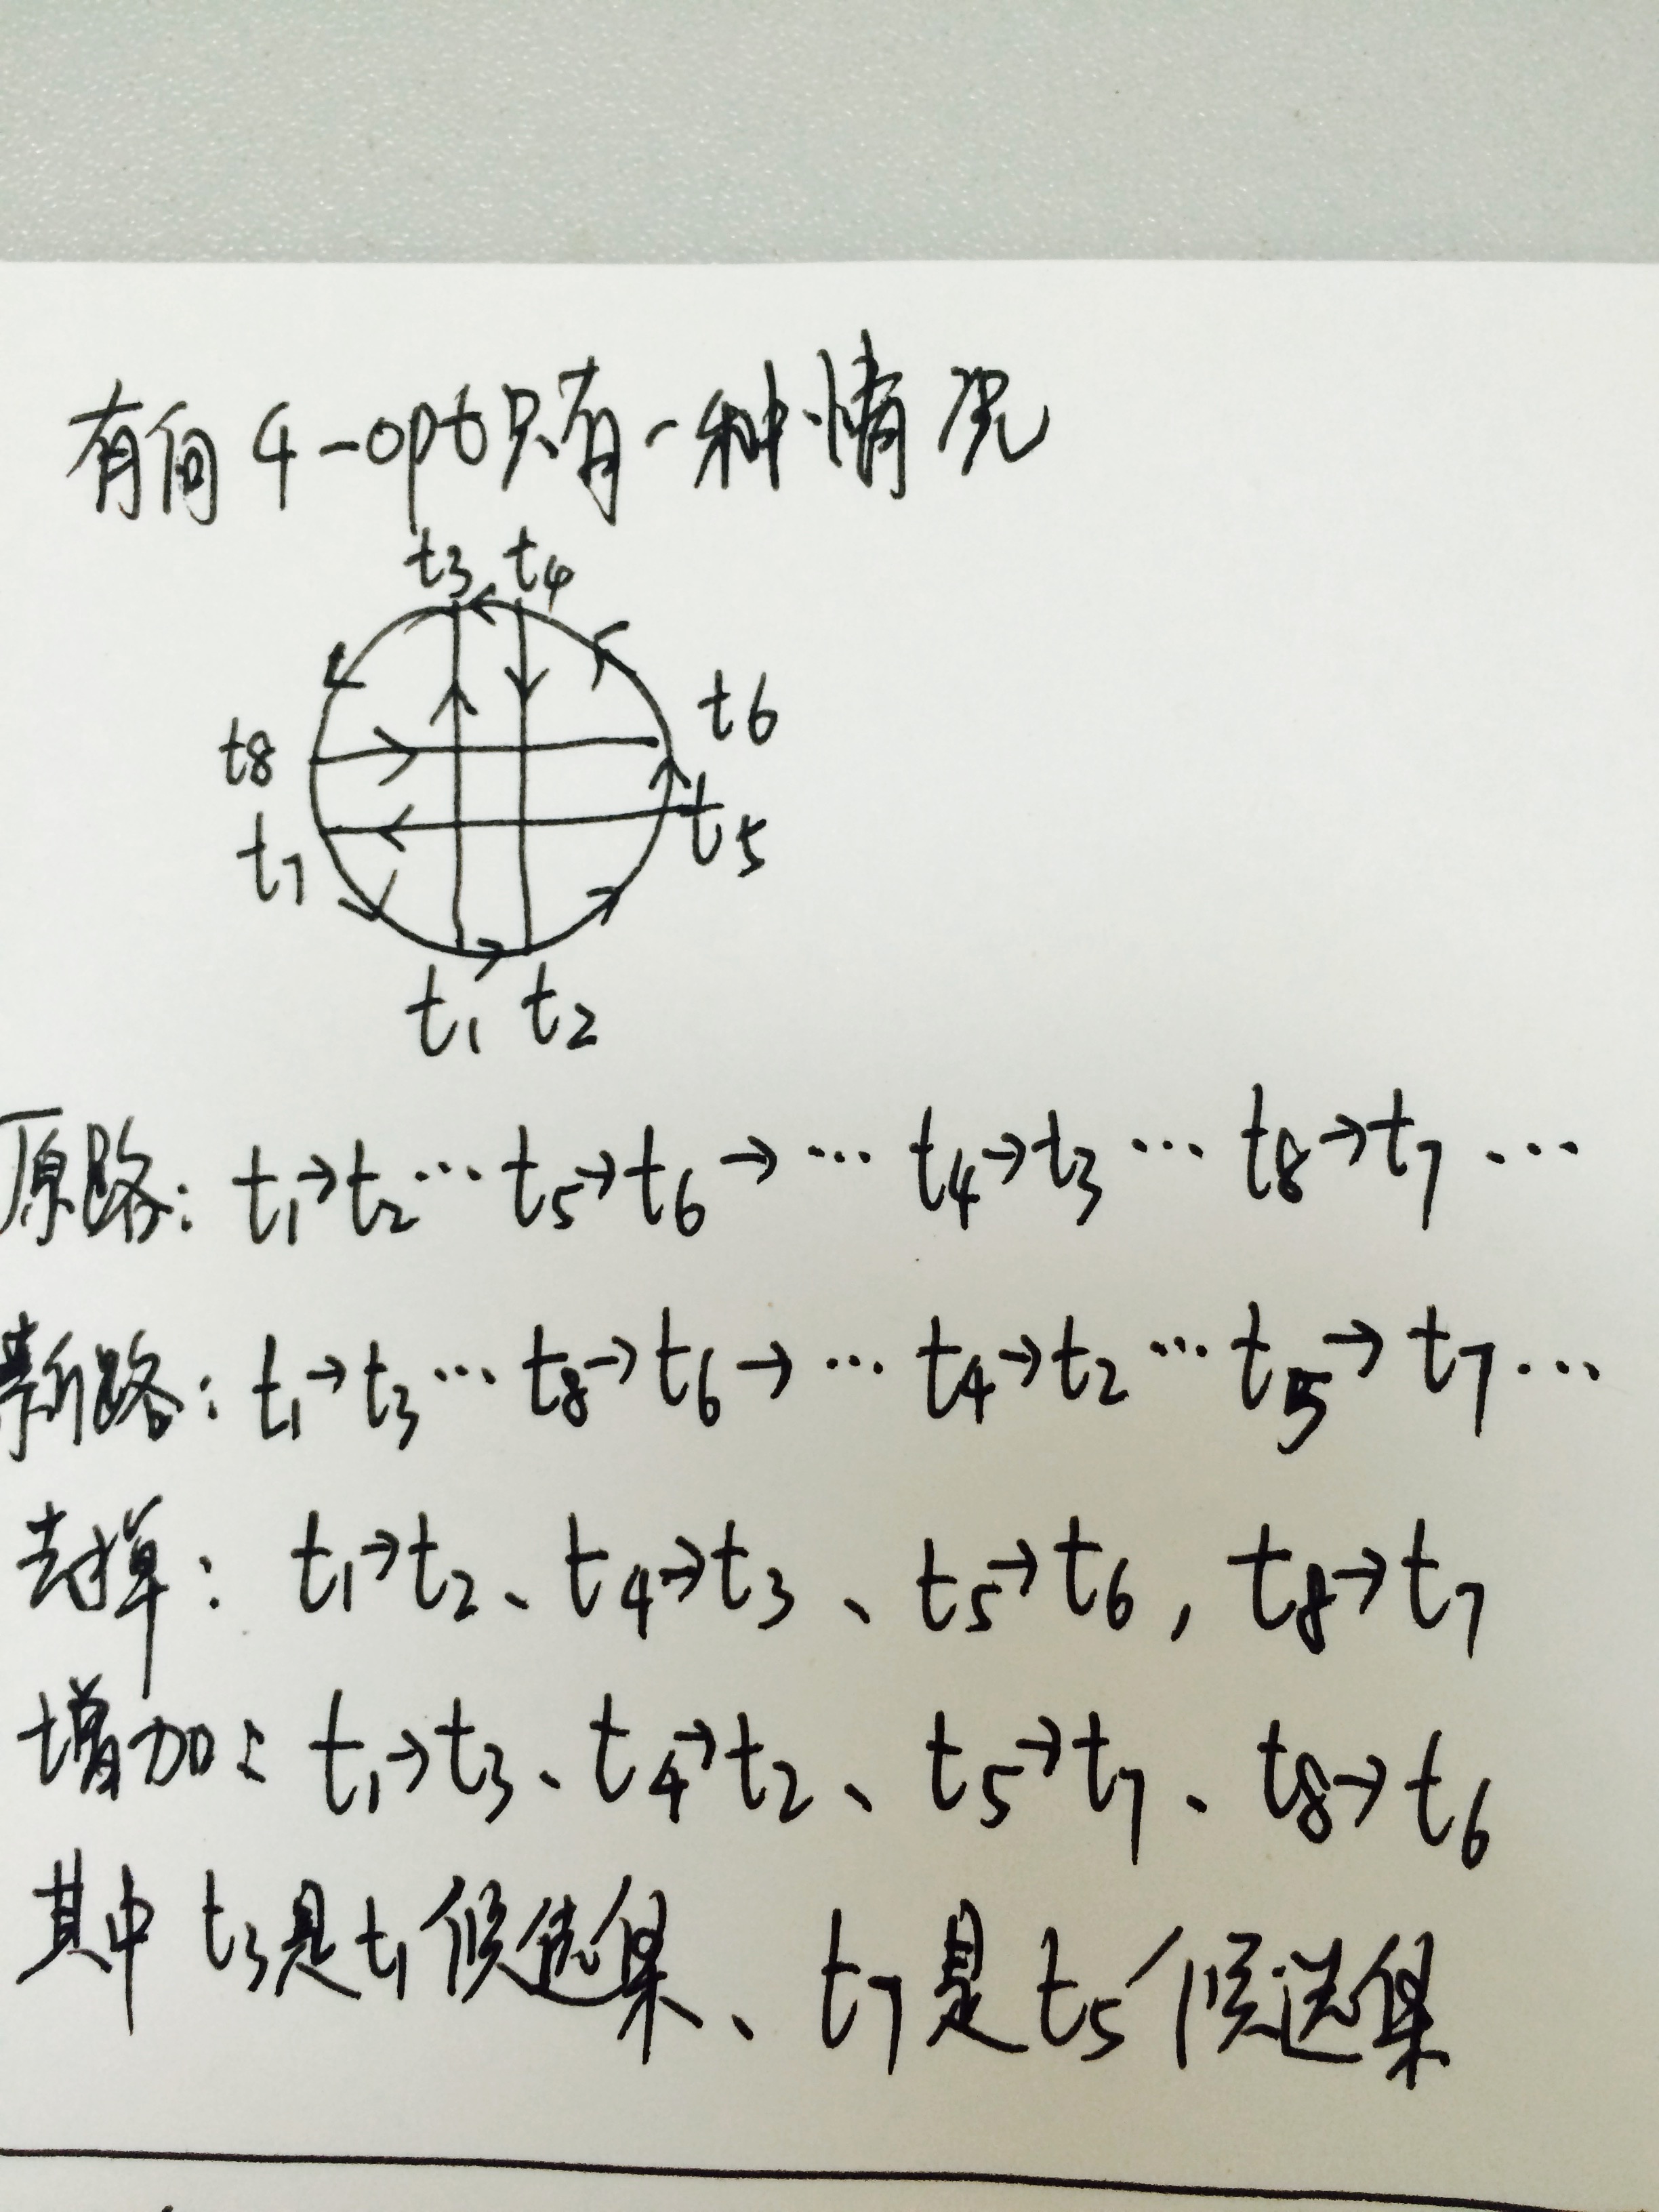 有向4-opt只有一种情况
t3 t4
t6
t8
t5
t7
t1 t2
原路: t1→t2…t5→t6→… t4→t3… t8→t7…
新路: t1→t3…t8→t6→… t4→t2…t5→t7…
去掉: t1→t2、t4→t3、t5→t6, t8→t7
增加: t1→t3、t4→t2、t5→t7、t8→t6
其中 t3是t1候选集、t7是t5候选集